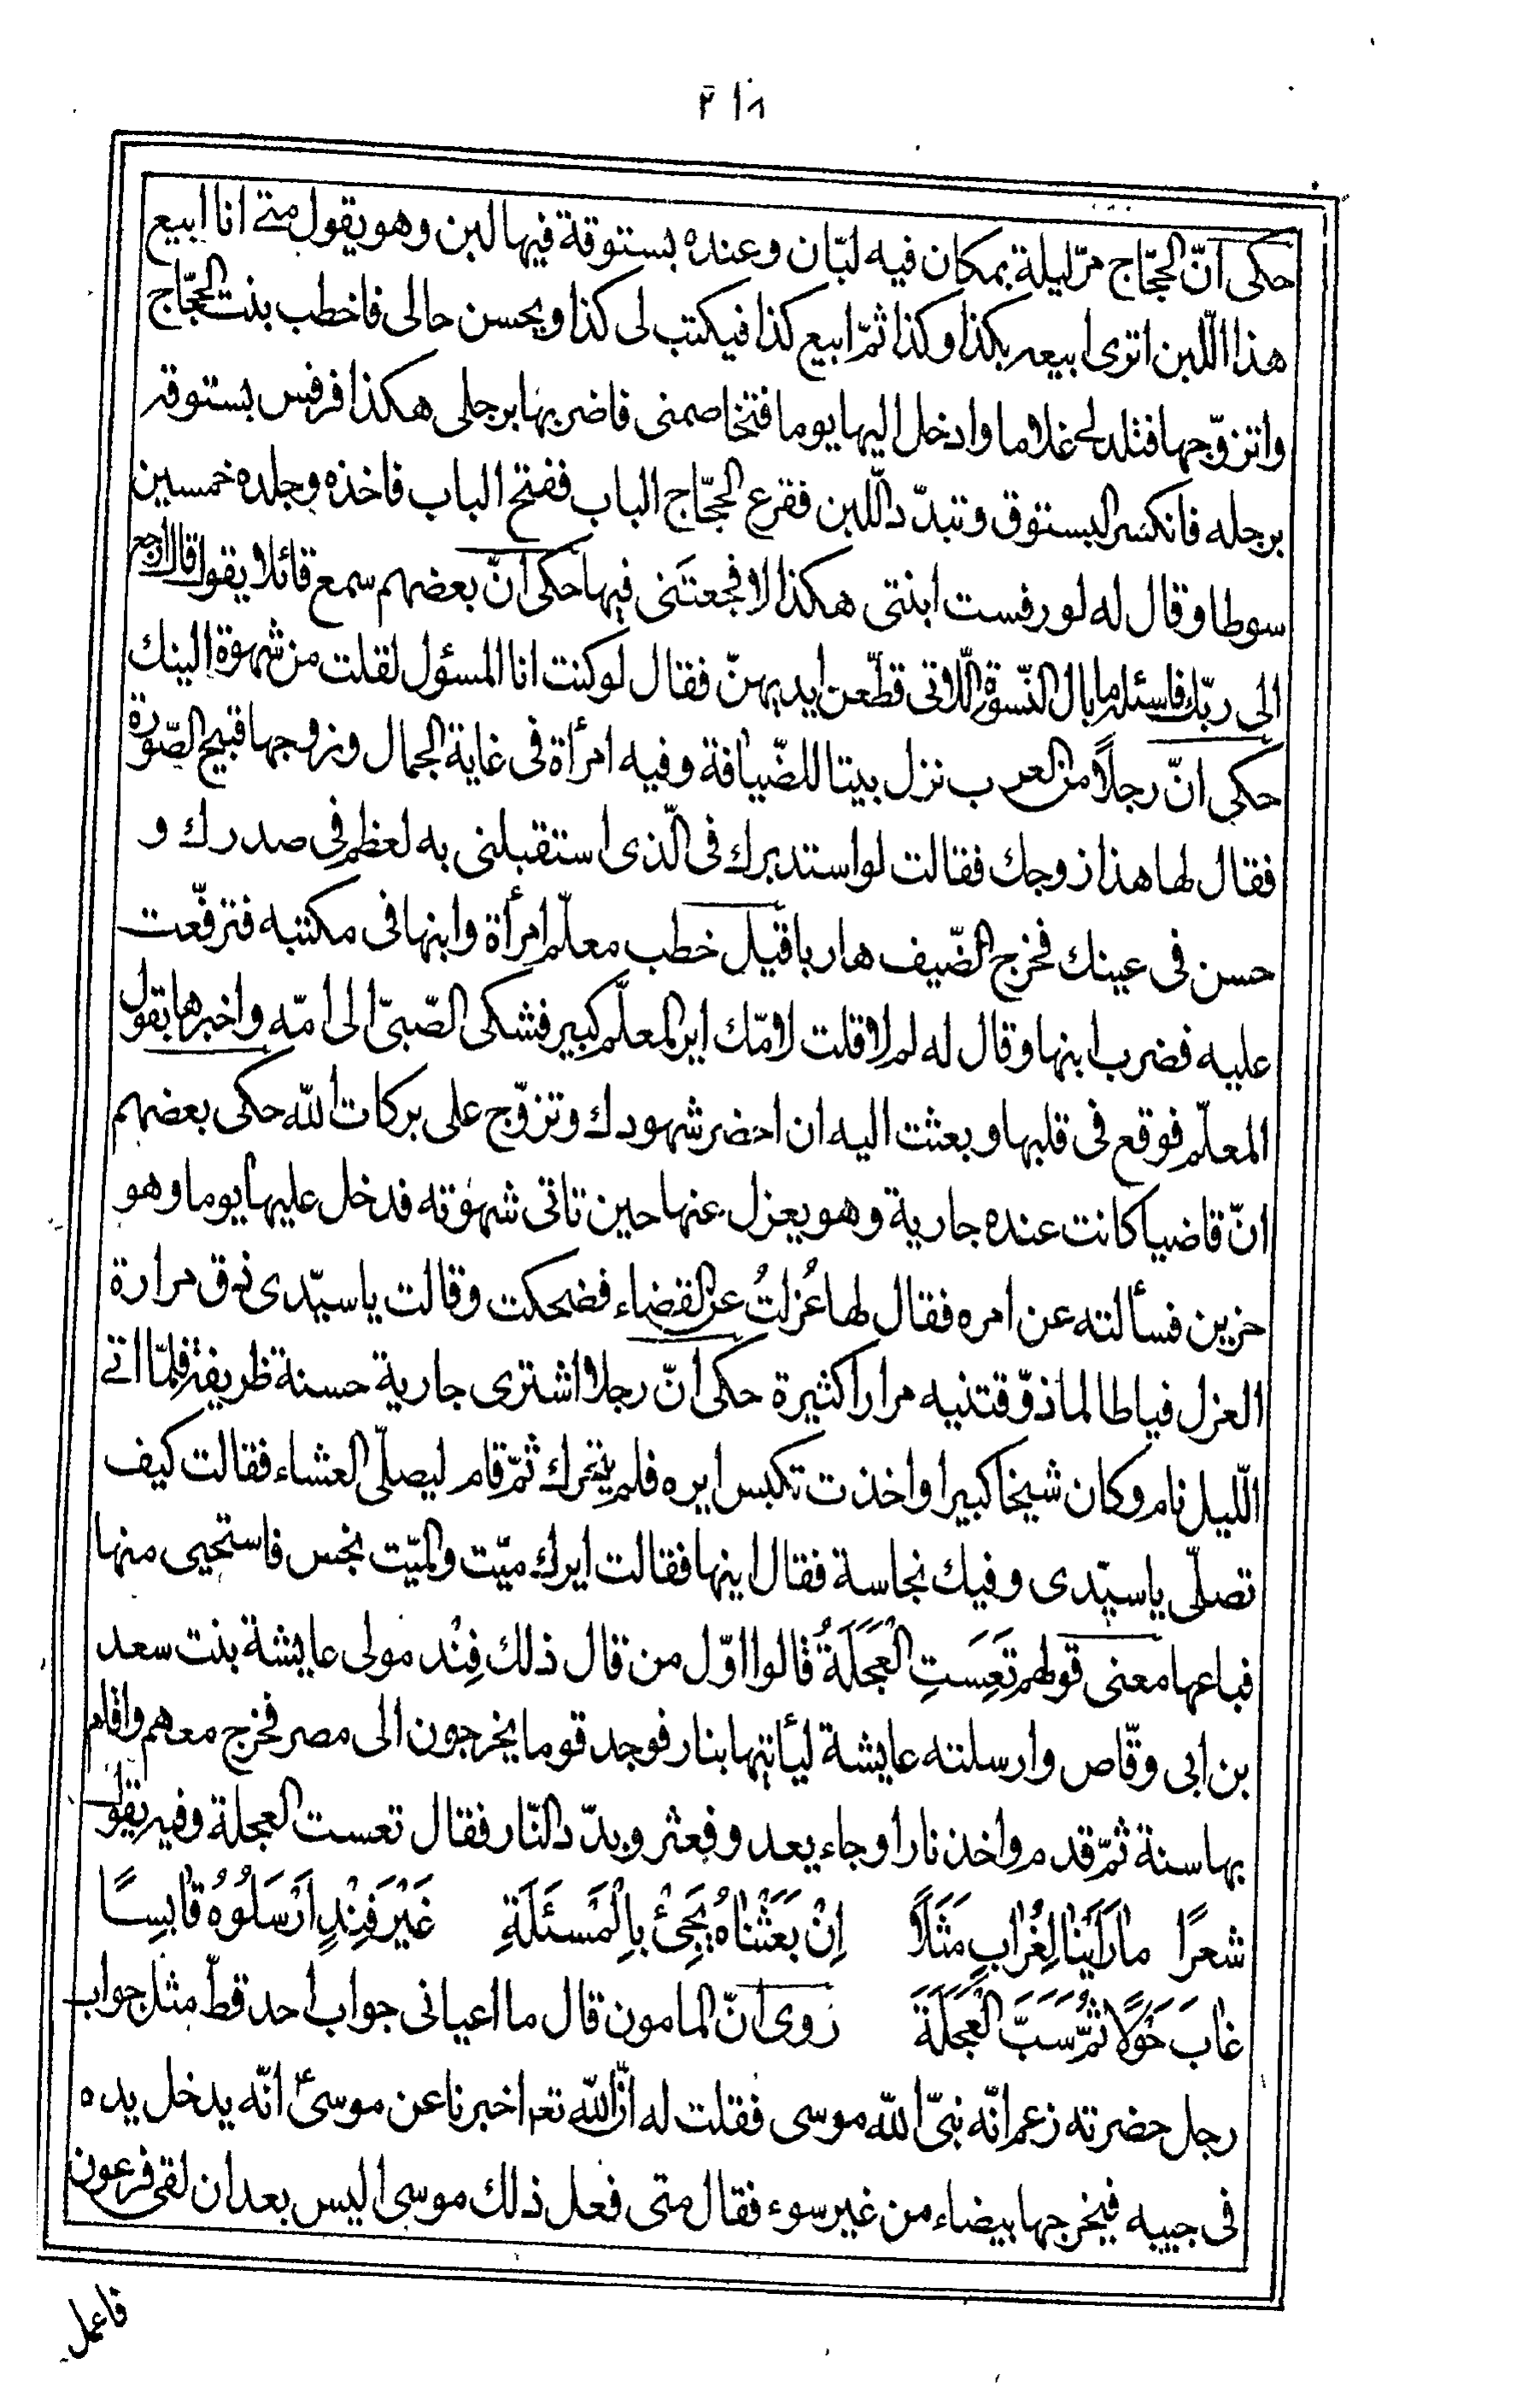 ٢١٨
حكى انّ الحجّاج مرّ ليلة بمكان فيه لبّان وعنده بستوقة فيها لبن وهو يقول متى انا ابيع
هذا اللّبن اترى ابيعه بكذا وكذا ثمّ ابيع كذا فيكتب لى كذا ويحسن حالى فاخطب بنت الحجّاج
واتزوّجها فتلد لى غلاما وادخل اليها يوما فتخاصمنى فاضربها برجلى هكذا فرفس بستوقه
برجله فانكسر البستوق وتبدّد اللّبن فقرع الحجّاج الباب ففتح الباب فاخذه وجلده خمسين
سوطا وقال له لو رفست ابنتى هكذا لا فجعتَنى فيها حكى انّ بعضهم سمع قائلا يقول قال ارجع
الى ربّك فاسئله ما بال النّسوة اللّاتى قطّعن ايديهنّ فقال لو كنت انا المسؤل لقلت من شهوة الينك
حكى انّ رجلاً من العرب نزل بيتا للضّيافة وفيه امرأة فى غاية الجمال وزوجها قبيح الصّورة
فقال لها هذا زوجك فقالت لو استدبرك فى الّذى استقبلنى به لعظم فى صدرك و
حسن فى عينك فخرج الضّيف هاربا قيل خطب معلّم امرأة وابنها فى مكتبه فترفّعت
عليه فضرب ابنها وقال له لم لا قلت لامّك اير المعلّم كبير فشكى الصّبىّ الى امّه واخبرها بقول
المعلّم فوقع فى قلبها وبعثت اليه ان احضر شهودك وتزوّج على بركات الله حكى بعضهم
انّ قاضيا كانت عنده جارية وهو يعزل عنها حين تاتى شهوته فدخل عليها يوما وهو
حزين فسألته عن امره فقال لها عُزلتُ عن القضاء فضحكت وقالت يا سيّدى ذق مرارة
العزل فياطالما ذوّقتنيه مرارا كثيرة حكى انّ رجلا اشترى جارية حسنة ظريفة فلمّا اتى
اللّيل نام وكان شيخا كبيرا واخذت تكبس ايره فلم يتحرك ثمّ قام ليصلّى العشاء فقالت كيف
تصلّى يا سيّدى وفيك نجاسة فقال اينها فقالت ايرك ميّت والميّت نجس فاستحيى منها
فباعها معنى قولهم تَعِسَتِ الْعَجَلَةُ قالوا اوّل من قال ذلك فِنْد مولى عايشة بنت سعد
بن ابى وقّاص وارسلته عايشة ليأتيها بنار فوجد قوما يخرجون الى مصر فخرج معهم واقام
بها سنة ثمّ قدم واخذ نارا وجاء يعدو فعثر وبدّد النّار فقال تعست العجلة وفيه يقول
شعرًا مٰا رَأَيْنٰا لِغُرٰابٍ مَثَلاً اِنْ بَعَثْنٰاهُ يَجِئْ بِالْمَسئَلَةِ غَيْرَ فِنْدٍ اَرْسَلُوهُ قٰابِسًا
غٰابَ حَوْلًا ثُمَّ سَبَّ الْعَجَلَةَ روى انّ المامون قال ما اعيانى جواب احد قطّ مثل جواب
رجل حضرته زعم انّه نبىّ الله موسى فقلت له انّ الله تعم اخبرنا عن موسىٰ انّه يدخل يده
فى جيبه فيخرجها بيضاء من غير سوء فقال متى فعل ذلك موسى اليس بعد ان لقى فرعون
فاعمل